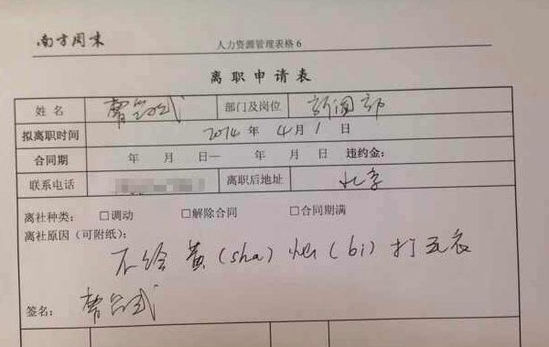 南方周末 人力资源管理表格 6
离职申请表
姓名 部门及岗位 新闻部
拟离职时间 2014 年 4 月 1 日
合同期 年 月 日— 年 月 日 违约金:
联系电话 离职后地址 北京
离社种类: □调动 □解除合同 □合同期满
离社原因(可附纸):
不给黄(sha)灿(bi)打工
签名: